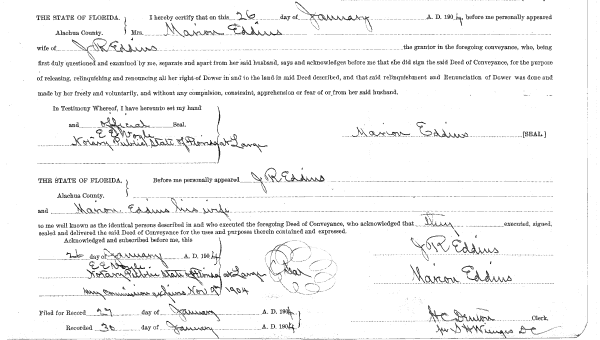 THE STATE OF FLORIDA. I hereby certify that on this 26 day of January A. D. 1904, before me personally appeared
Alachua County. Mrs. Marion Eddins
wife of J R Eddins the grantor in the foregoing conveyance, who, being
first duly questioned and examined by me, separate and apart from her said husband, says and acknowledges before me that she did sign the said Deed of Conveyance, for the purpose
of releasing, relinquishing and renouncing all her right of Dower in and to the land in said Deed described, and that said relinquishment and Renunciation of Dower was done and
made by her freely and voluntarily, and without any compulsion, constraint, apprehension or fear of or from her said husband.
In Testimony Whereof, I have hereunto set my hand
and official Seal.
E E Voyle
Notary Public State of Florida at Large
Marion Eddins [SEAL]
THE STATE OF FLORIDA. Before me personally appeared J R Eddins
Alachua County.
and Marion Eddins his wife
to me well known as the identical persons described in and who executed the foregoing Deed of Conveyance, who acknowledged that they executed, signed,
sealed and delivered the said Deed of Conveyance for the uses and purposes therein contained and expressed.
Acknowledged and subscribed before me, this
26 day of January A. D. 1904
E E Voyle
Notary Public State of Florida at Large
my commission expires Nov 9 1904
Seal
J R Eddins
Marion Eddins
Filed for Record 27 day of January A. D. 1904
Recorded 30 day of January A. D. 1904
H C Denton Clerk.
per S H Wienges D C